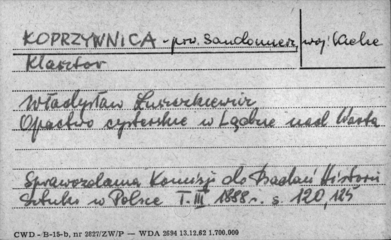 KOPRZYWNICA - pow. Sandomierz, woj. Kielce
Klasztor
Władysław Łuszczkiewicz
Opactwo cysterskie w Lądzie nad Wartą
Sprawozdania Komisji do Badań Historii
Sztuki w Polsce T. III 1888 r. s. 120, 125
CWD - B-15-b, nr 2827/ZW/P — WDA 2694 13.12.62 1.700.000